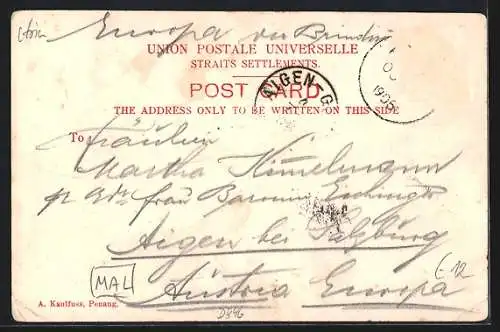 Europa via Brindisi
UNION POSTALE UNIVERSELLE
STRAITS SETTLEMENTS.
POST CARD
AIGEN-G
1905
THE ADDRESS ONLY TO BE WRITTEN ON THIS SIDE
To Fräulein
Martha
frau Baronin
Aigen bei Salzburg
MAL
Austria Europa
A. Kaulfuss, Penang.